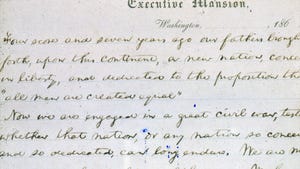 Executive Mansion,
Washington, , 186
Four score and seven years ago our fathers brough
forth, upon this continent, a new nation, conce
in liberty, and dedicated to the proposition tha
"all men are created equal"
Now we are engaged in a great civil war, test
whether that nation, or any nation so conce
and so dedicated, can long endure. We are m